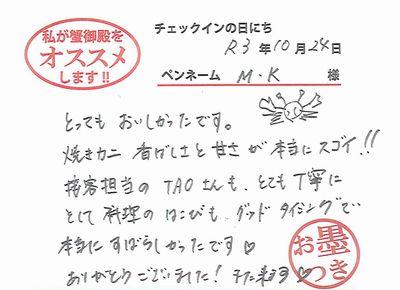 私が蟹御殿を
オススメ
します!!
チェックインの日にち
R3年10月24日
ペンネーム M・K 様
とっても おいしかったです。
焼きカニ 香ばしさと甘さが本当にスゴイ!!
接客担当の TAOさんも、とても丁寧に
そして 料理の はこびも、グッドタイミングで
本当にすばらしかったです♡
ありがとうございました! また来ます♡
お墨つき